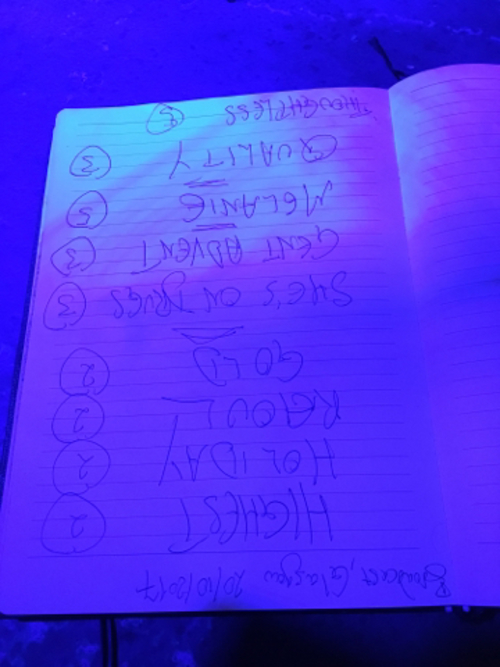 Broadcast, Glasgow 20/10/2017
HIGHEST 2
HOLIDAY 2
RAOUL 2
GOLD 2
SHE'S ON DRUGS 3
GENT ADVENT 3
MELANIE 5
QUALITY 3
THOUGHTLESS